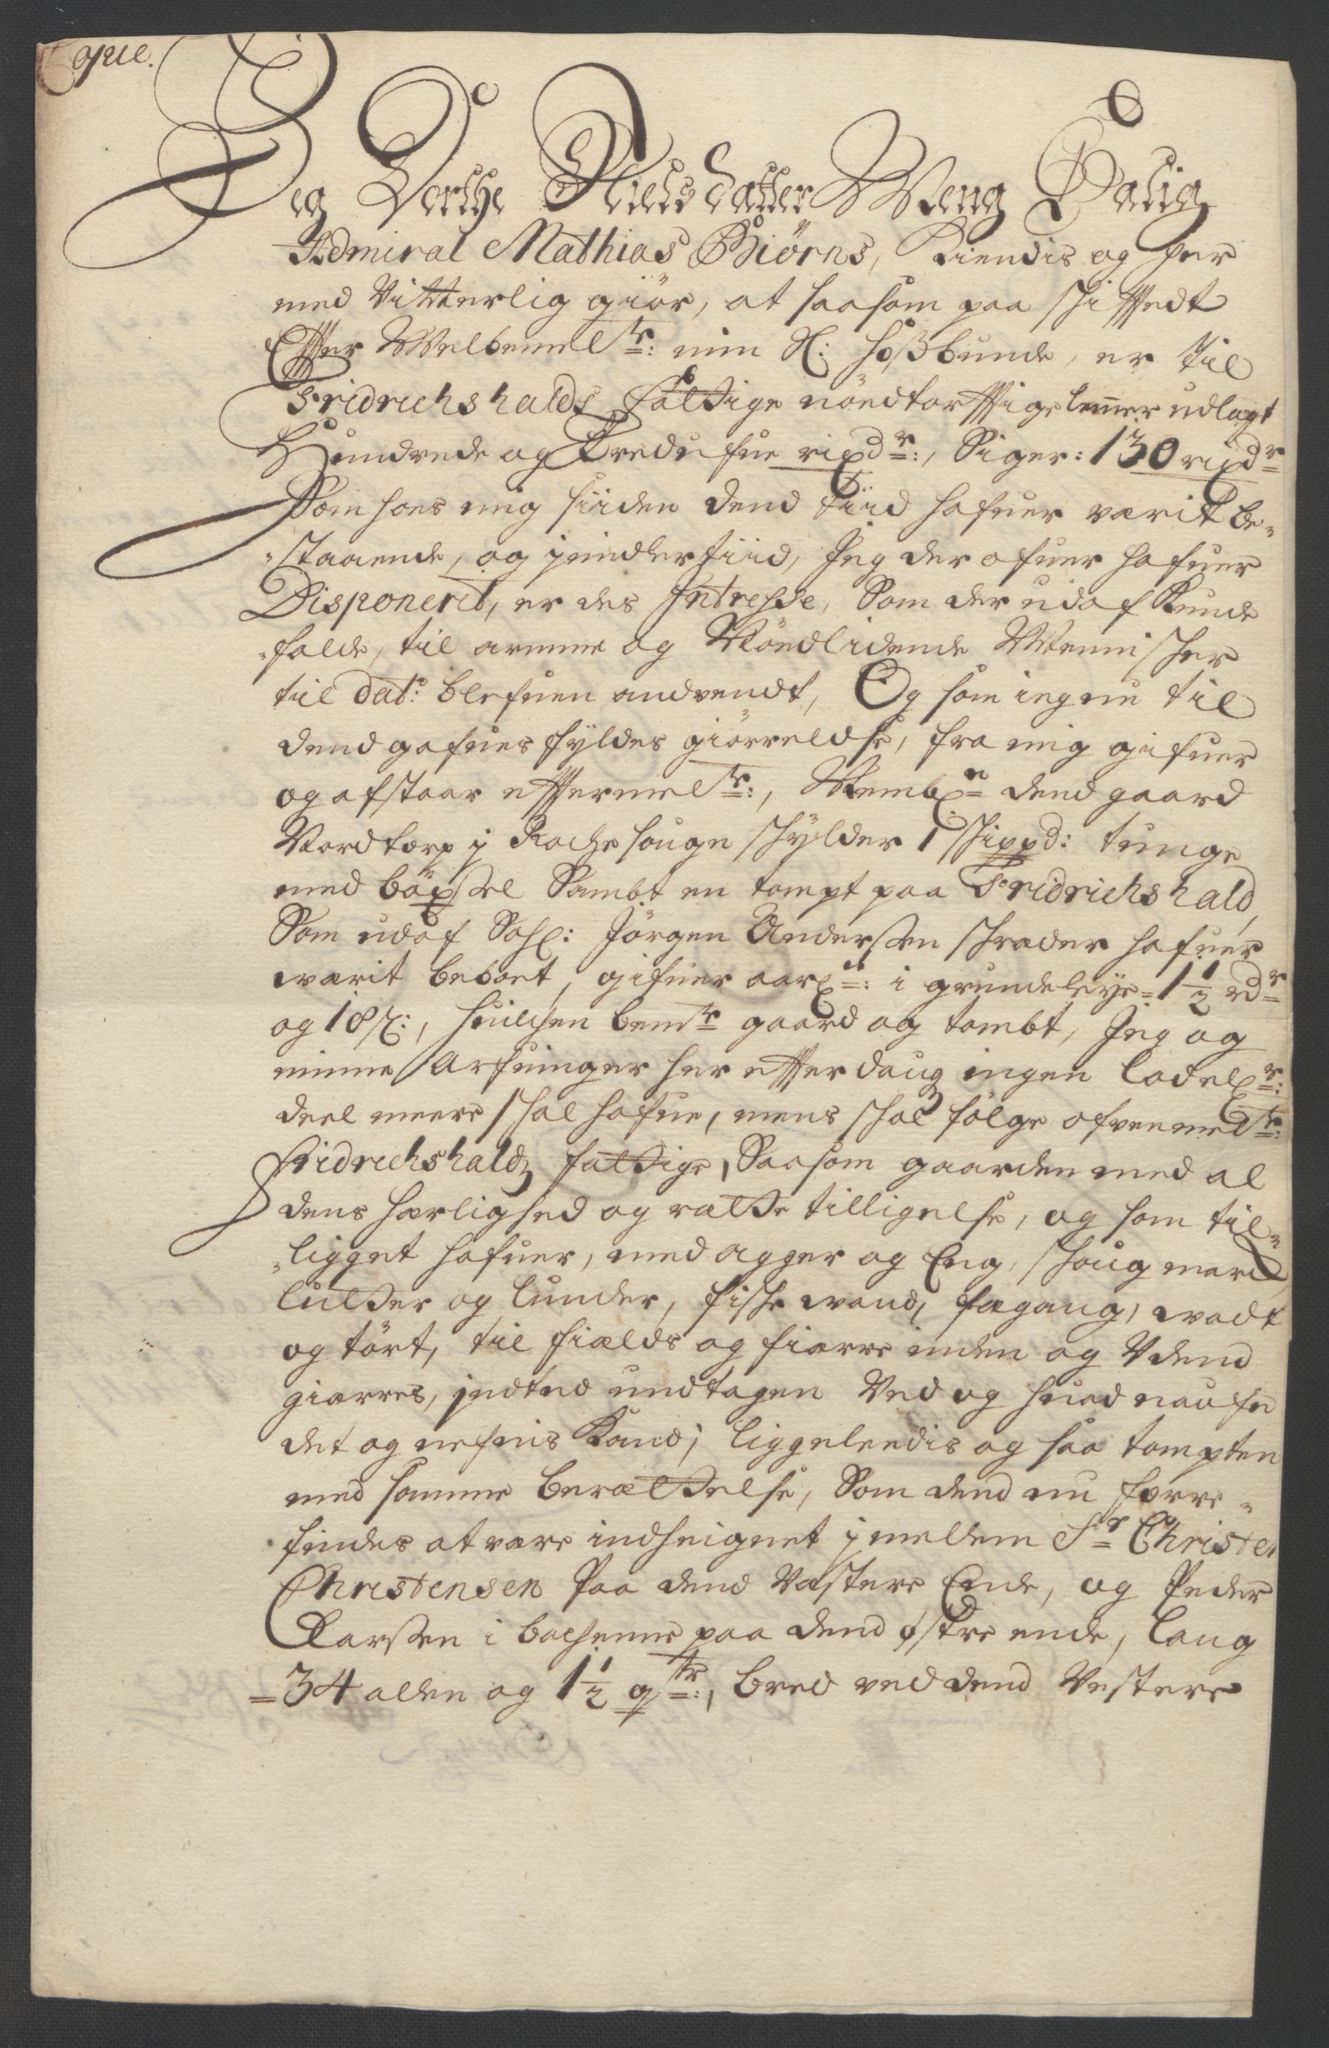 Copie.
Jeg Dorthe Nielsdatter Weng Salig
Admiral Mathias Biörns, Kiendis og her
med Vitterlig giör, at saasom paa schifftedt
Effter Welbemelte: min S: Hoßbunde, er til
Fridrichshalds fattige nöedtorfftige lemer udlagt
Hundrede og Tredifue rixdr:, Siger: 130 rixdr
Som hoes mig siiden dend tiid hafuer værit be-
staaende, og jmidlertiid, Jeg der ofuer hafuer
Disponerit, er des Intresse, Som der udaf Kunde
falde, til arme og Nöedlidende Mennischer
til dato: blefuen anvendt, Og som ieg nu til
dend gafues fyldes giörrelse, fra mig gifuer
og afstaar efftermelte:, Nembl: dend gaard
Nordtorp j Rache sougn schylder 1 schippd: tunge
med böxsel Sambt en tompt paa Fridrichshald
Som udaf Sahl: Jörgen Anderssen schreder hafuer
værit beboet, gifuer aarl: i grundeleye = 1 1/2 rdr
og 18 s:, huilchen bemte gaard og tombt, Jeg og
minne Arfuinger her effter dags ingen lodel:
deel meere schal hafue, mens schal fölge ofvenmelte:
Fridrichshalds fattige, Saasom gaarden med al
dens herlighed og rætte tilligelse, og som til-
ligget hafuer, med agger og Eng, schoug mark
lutter og lunder, fische vand, fægang, vaadt
og tört, til fields og fiærre inden og Uden
giærres, jndted undtagen Ved og huad naufn
det og nefnis Kand; liggeleedis og saa tompten
med samme berættelse, Som dend nu forre-
findes at være indheignet jmellem Sr Christen
Christensen Paa dend Vestere Ende, og Peder
Larssen i bachenne paa dend østre ende, lang
= 34 alen og 1 1/2 qtr:, bred ved dend Vestere